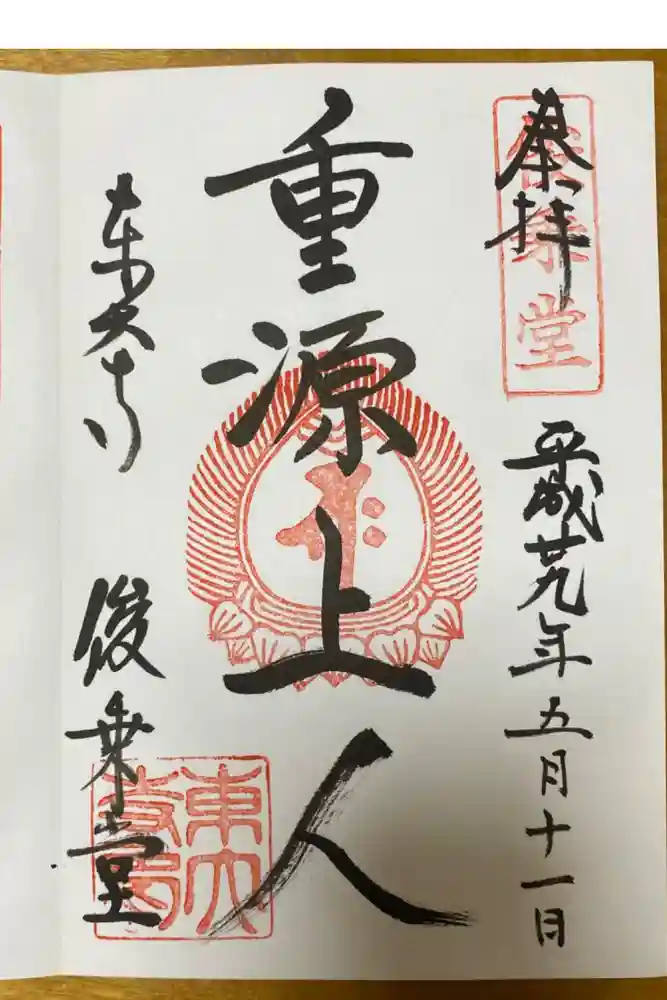 奉拝
堂
平成廿九年五月十一日
重源上人
東大寺
俊乗堂
東大